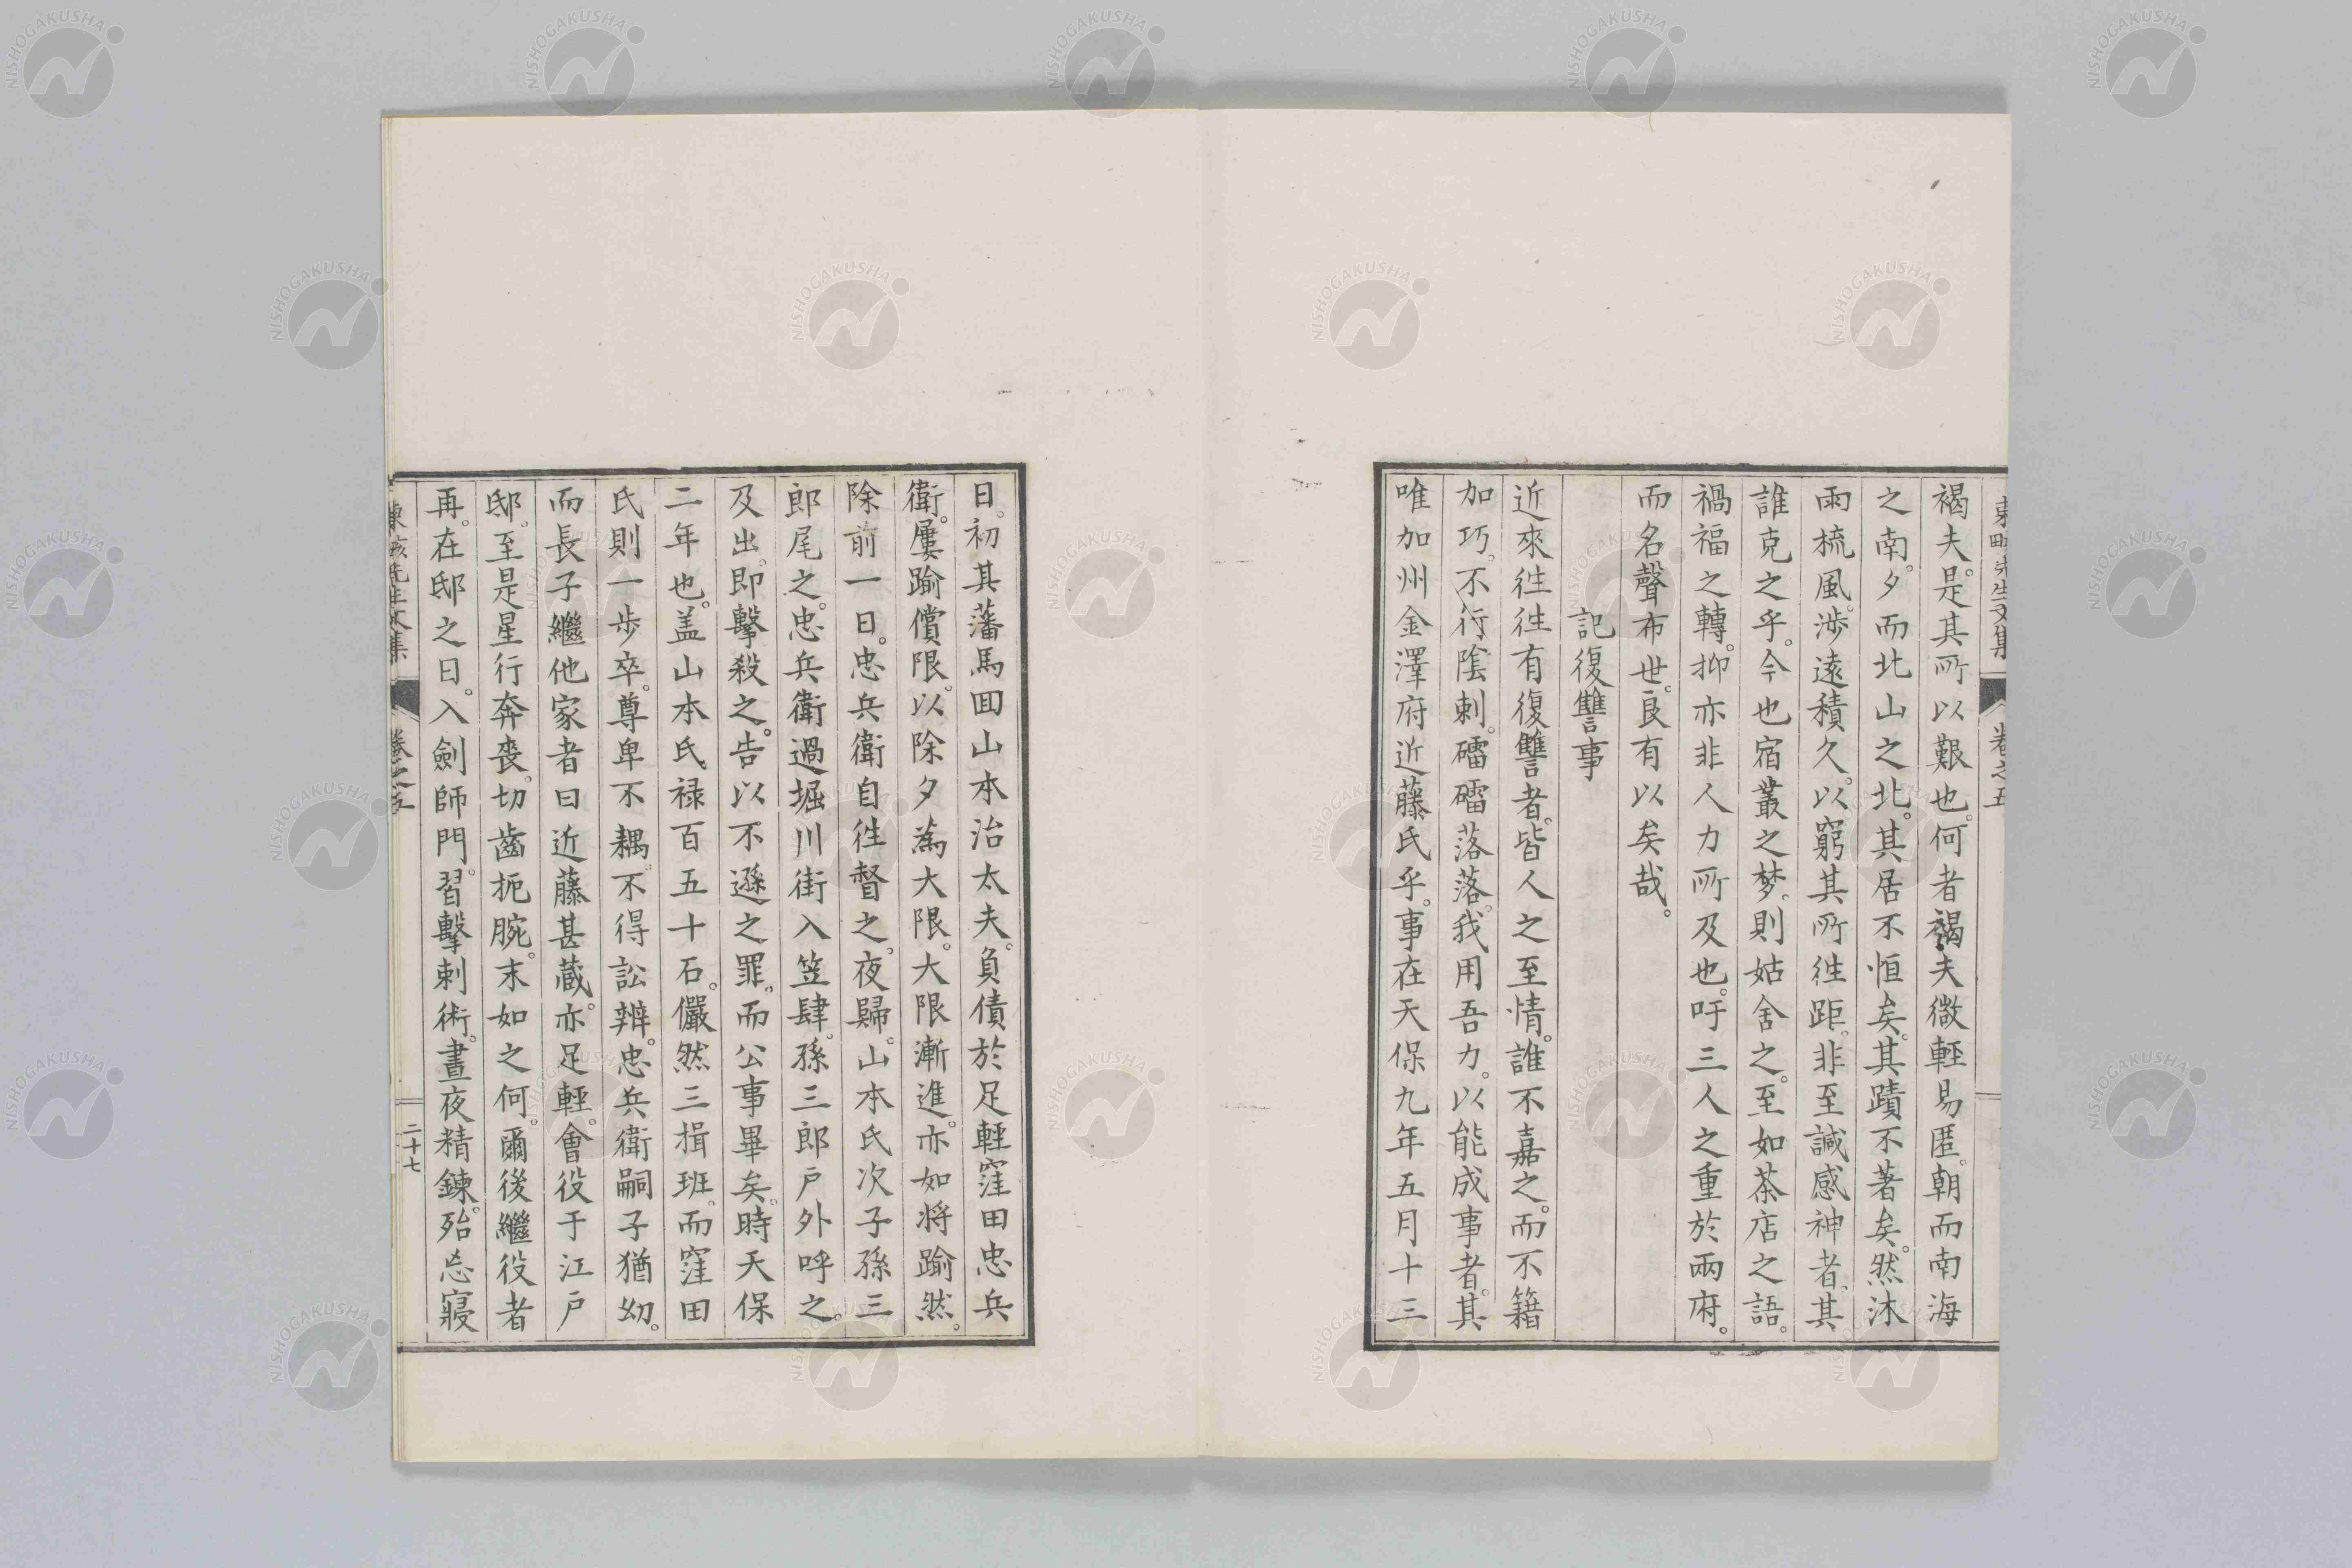 褐夫。是其所以艱也。何者褐夫微輕易匿。朝而南海
之南。夕而北山之北。其居不恒矣。其蹟不著矣。然沐
雨梳風。渉遠積久。以窮其所往距。非至諴感神者。其
誰克之乎。今也宿叢之梦。則姑舍之。至如茶店之語。
禍福之轉。抑亦非人力所及也。吁三人之重於兩府。
而名聲布世。良有以矣哉。
記復讐事
近來往往有復讐者。皆人之至情。誰不嘉之。而不籍
加巧。不行陰刺。礌礌落落。我用吾力。以能成事者。其
唯加州金澤府近藤氏乎。事在天保九年五月十三
先生文集
卷之五
日。初其藩馬囬山本治太夫。負債於足輕窪田忠兵
衛。屢踰償限。以除夕為大限。大限漸進。亦如将踰然。
除前一日。忠兵衛自往督之。夜歸。山本氏次子孫三
郎尾之。忠兵衛過堀川街入笠肆。孫三郎戸外呼之。
及出。即擊殺之。告以不遜之罪。而公事畢矣。時天保
二年也。盖山本氏禄百五十石。儼然三揖班。而窪田
氏則一歩卒。尊卑不耦。不得訟辨。忠兵衛嗣子猶幼。
而長子繼他家者曰近藤甚蔵。亦足輕。會役于江戸
邸。至是星行奔喪。切齒扼腕。末如之何。爾後繼役者
再。在邸之日。入劍師門。習擊刺術。晝夜精鍊。殆忘寢
先生文集
卷之五
二十七
NISHOGAKUSHA